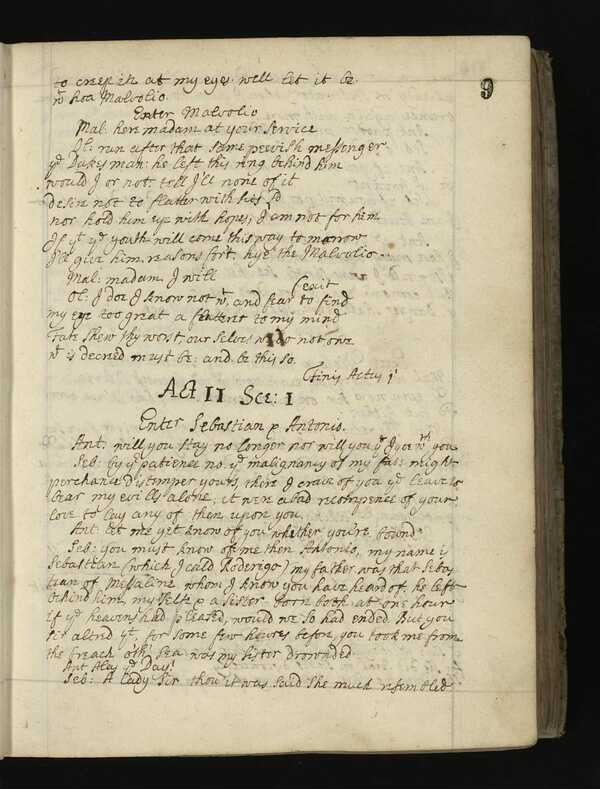 9
to creep in at my eyes. well let it be.
wt hoa Malvolio.
Enter Malvolio
Mal: here madam at your service
Ol: run after that same pevish messenger
ye Dukes man: he left this ring behind him
would I or not: tell I'll none of it
desire not to flatter with his Ld
nor hold him up with hopes, I am not for him
If yt ye youth will come this way to morrow
I'll give him reasons for't. hye the Malvolio..
Mal: madam I will (exit
Ol: I doe I know not wt, and fear to find
my eye too great a flatterer to my mind
Fate shew thy worst, our selves we do not owe
wt is decreed must be: and be this so.
Finis Actus 1
Act II Sce: I
Enter Sebastian & Antonio.
Ant: will you stay no longer nor will you yt I goe wt you
Seb: by yr patience no. ye malignancy of my fate might
perchance distemper yours, there I crave of you yr leave to
bear my evills alone, it were a bad recompence of your
love to lay any of them upon you.
Ant: let me yet know of you whether you're bound
Seb: you must know of me then Antonio, my name is
Sebastian (which I cald Roderigo) my father was that Sebas
tian of Messaline whom I know you have heard of. he left
behind him my selfe & a sister. born both at one hour
if ye heavens had pleased, would we so had ended. But you
Sir altred yt, for some few houres before you took me from
the breach oth' sea was my sister drownded
Ant Alas ye Day!
Seb: A lady Sir tho' it was said she much resembled